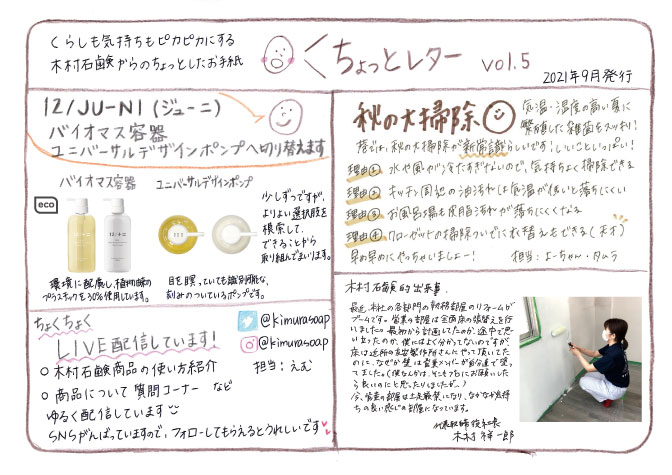 くらしも気持ちもピカピカにする
木村石鹸からのちょっとしたお手紙
ちょっとレター vol.5
2021年9月発行
12/JU-NI (ジューニ)
バイオマス容器
ユニバーサルデザインポンプへ切り替えます
バイオマス容器 ユニバーサルデザインポンプ
eco
少しずつですが、
よりよい選択肢を
模索して、
できることから
取り組んでまいります。
環境に配慮し、植物由来の
プラスチックを30%使用しています。
目を瞑っていても識別可能な、
刻みのついているポンプです。
ちょくちょく
LIVE配信しています!
@kimurasoap
@kimurasoap
○ 木村石鹸商品の使い方紹介
担当:えむ
○ 商品について質問コーナー など
ゆるく配信しています
SNSがんばっていますので、フォローしてもらえるとうれしいです
秋の大掃除
気温・湿度の高い夏に
繁殖した雑菌をスッキリ!
秋の大掃除が新常識らしいです!いいこといっぱい!
理由① 水や風が冷たすぎないので、気持ちよく掃除できる
理由② キッチン周辺の油汚れは気温が低いと落ちにくい
理由③ お風呂場も皮脂汚れが落ちにくくなる
理由④ クローゼットの掃除ついでに衣替えもできる(天才)
早め早めにやっちゃいましょー!
担当:よーちゃん・タムラ
木村石鹸的出来事
最近、本社の各部門の執務部屋のリフォームが
ブームです。営業の部屋は全面床の張替えを行
いました。最初から計画してたのか、途中で思
い立ったのか、僕にはよく分かってないのですが、
床は近所の
さんにやって頂いてた
のに、なぜか壁は営業メンバーが自分達で塗っ
てました。(僕なんかは、そこもプロにお願いした
ら良いのにと思ったりしましたが…)
今、営業の部屋は土足厳禁になり、なかなか気持
ちの良い感じの部屋になっています。
代表取締役社長
木村祥一郎